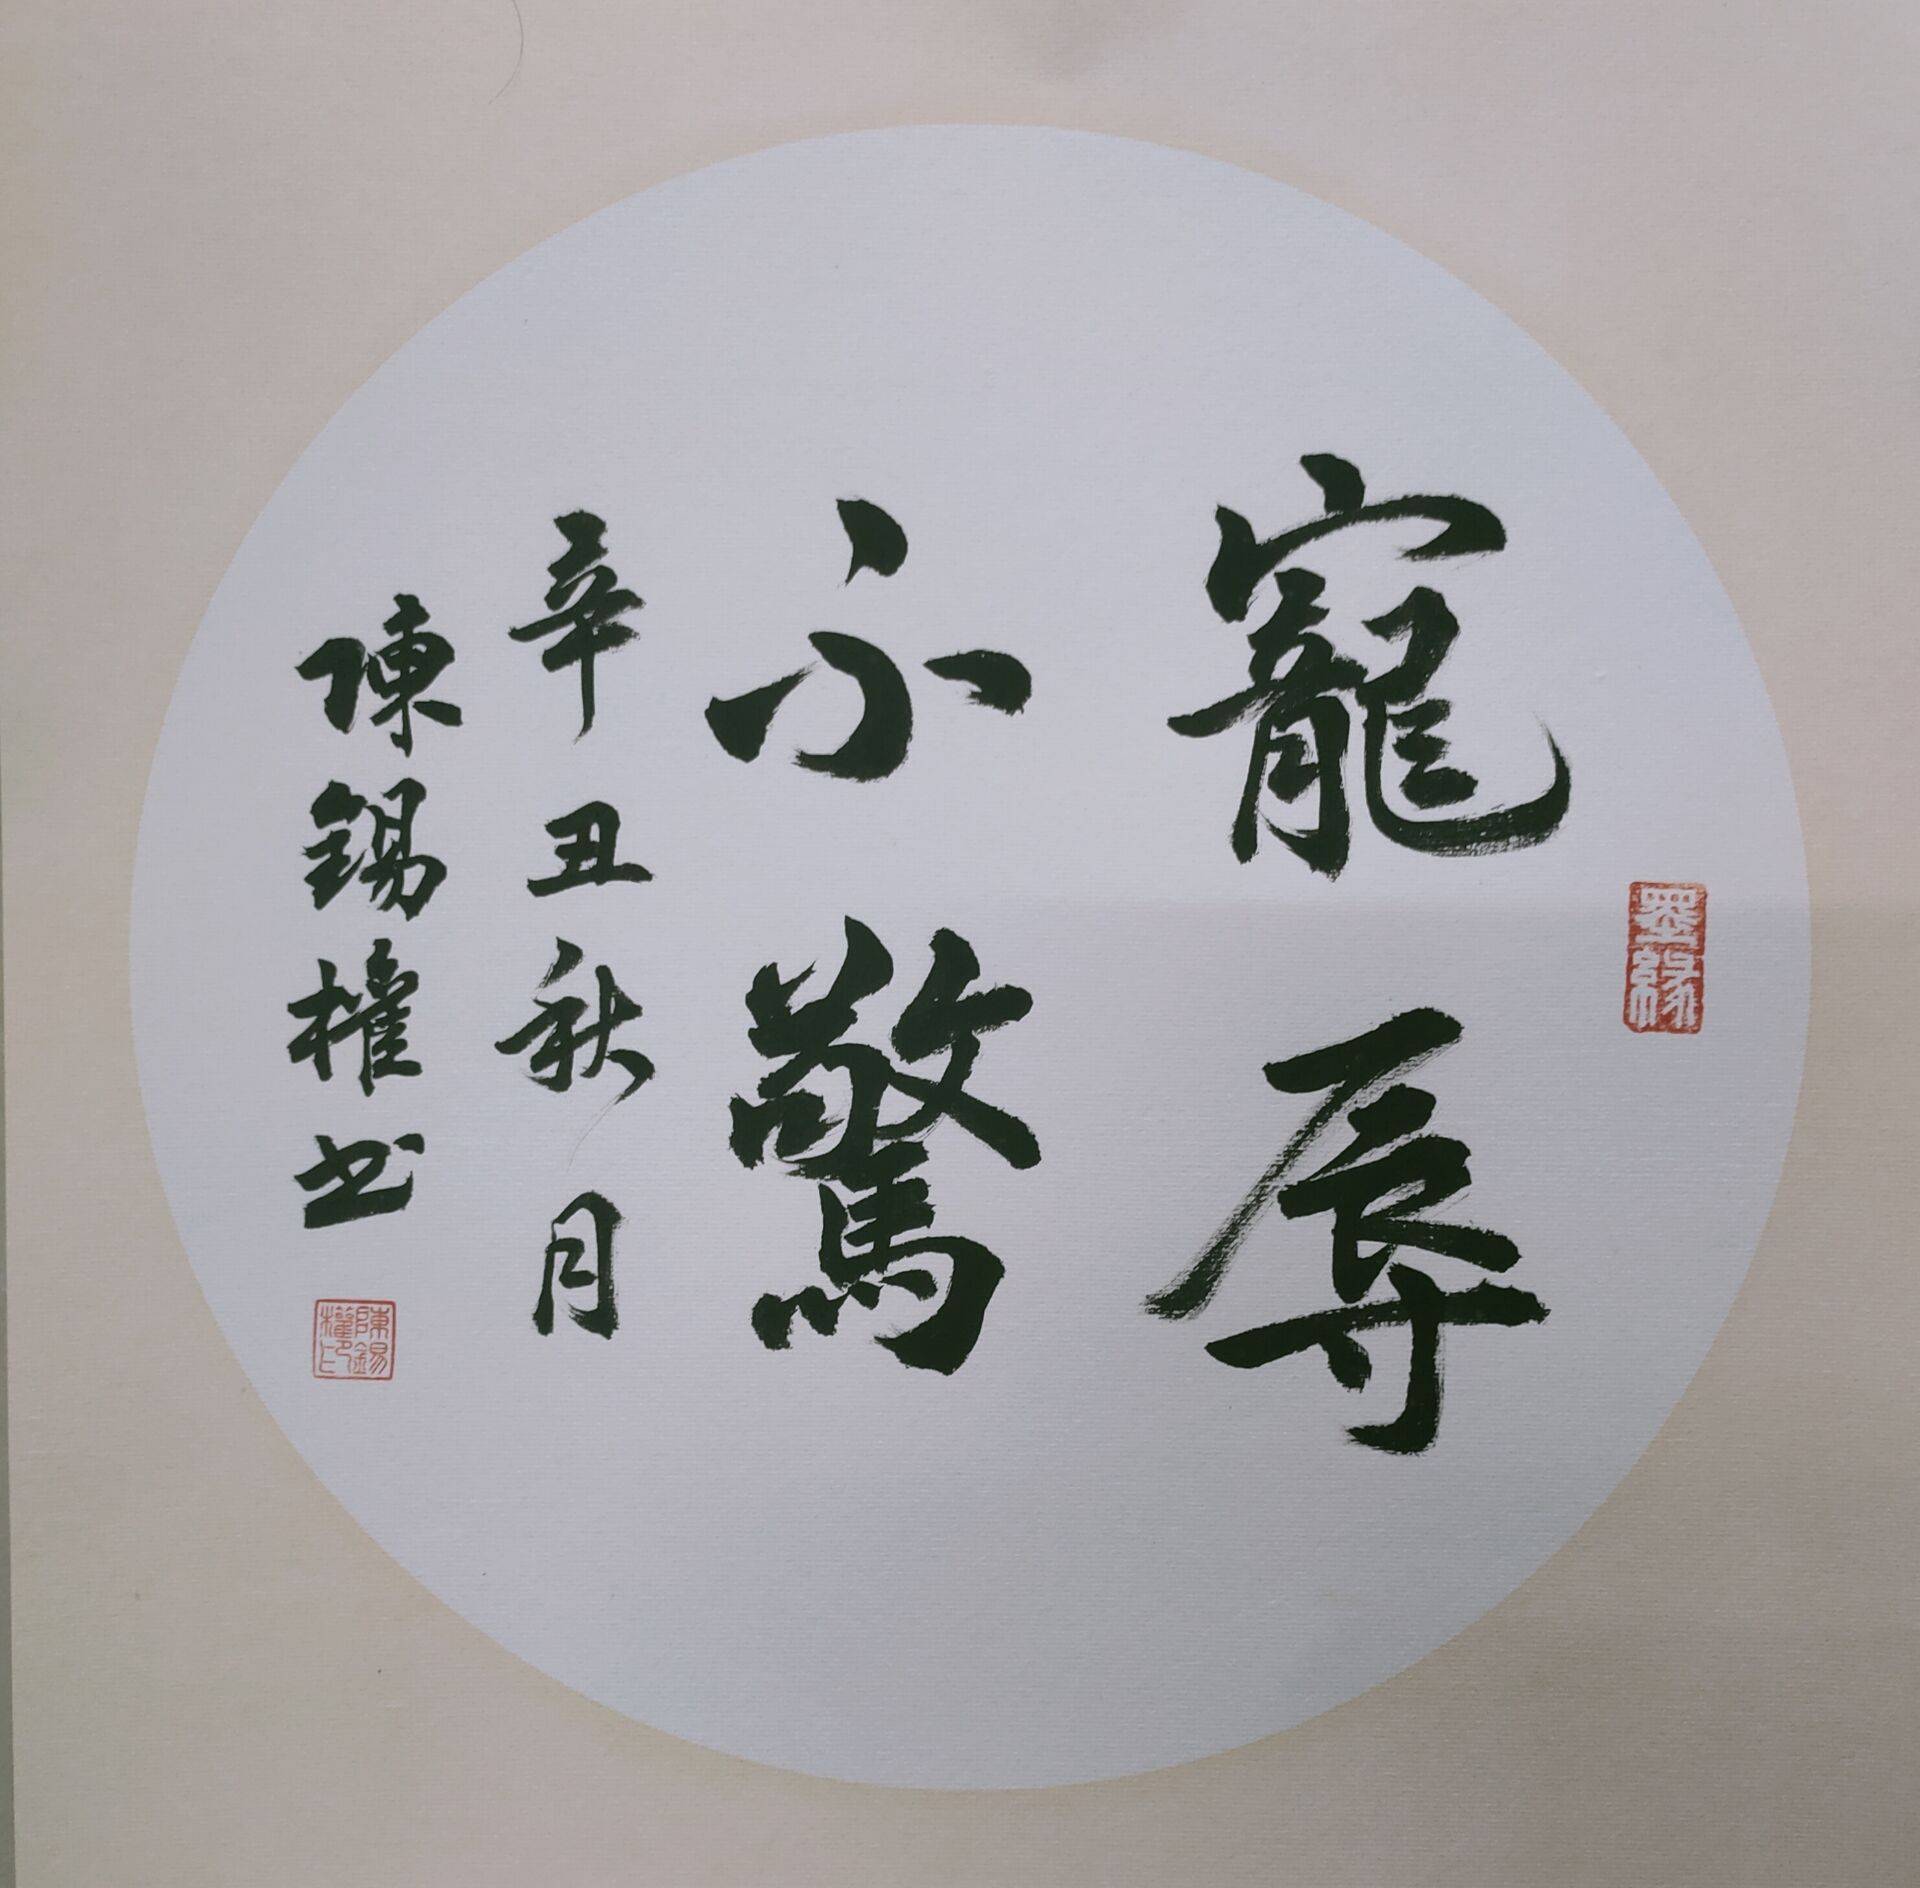 寵辱
不驚
辛丑秋月
陳錫權书
墨緣
陳錫
權印